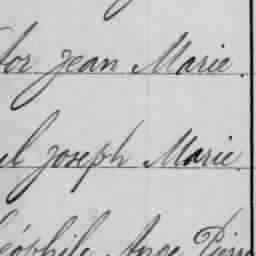 tor Jean Marie.
el joseph Marie.
éophile Ange Pierre